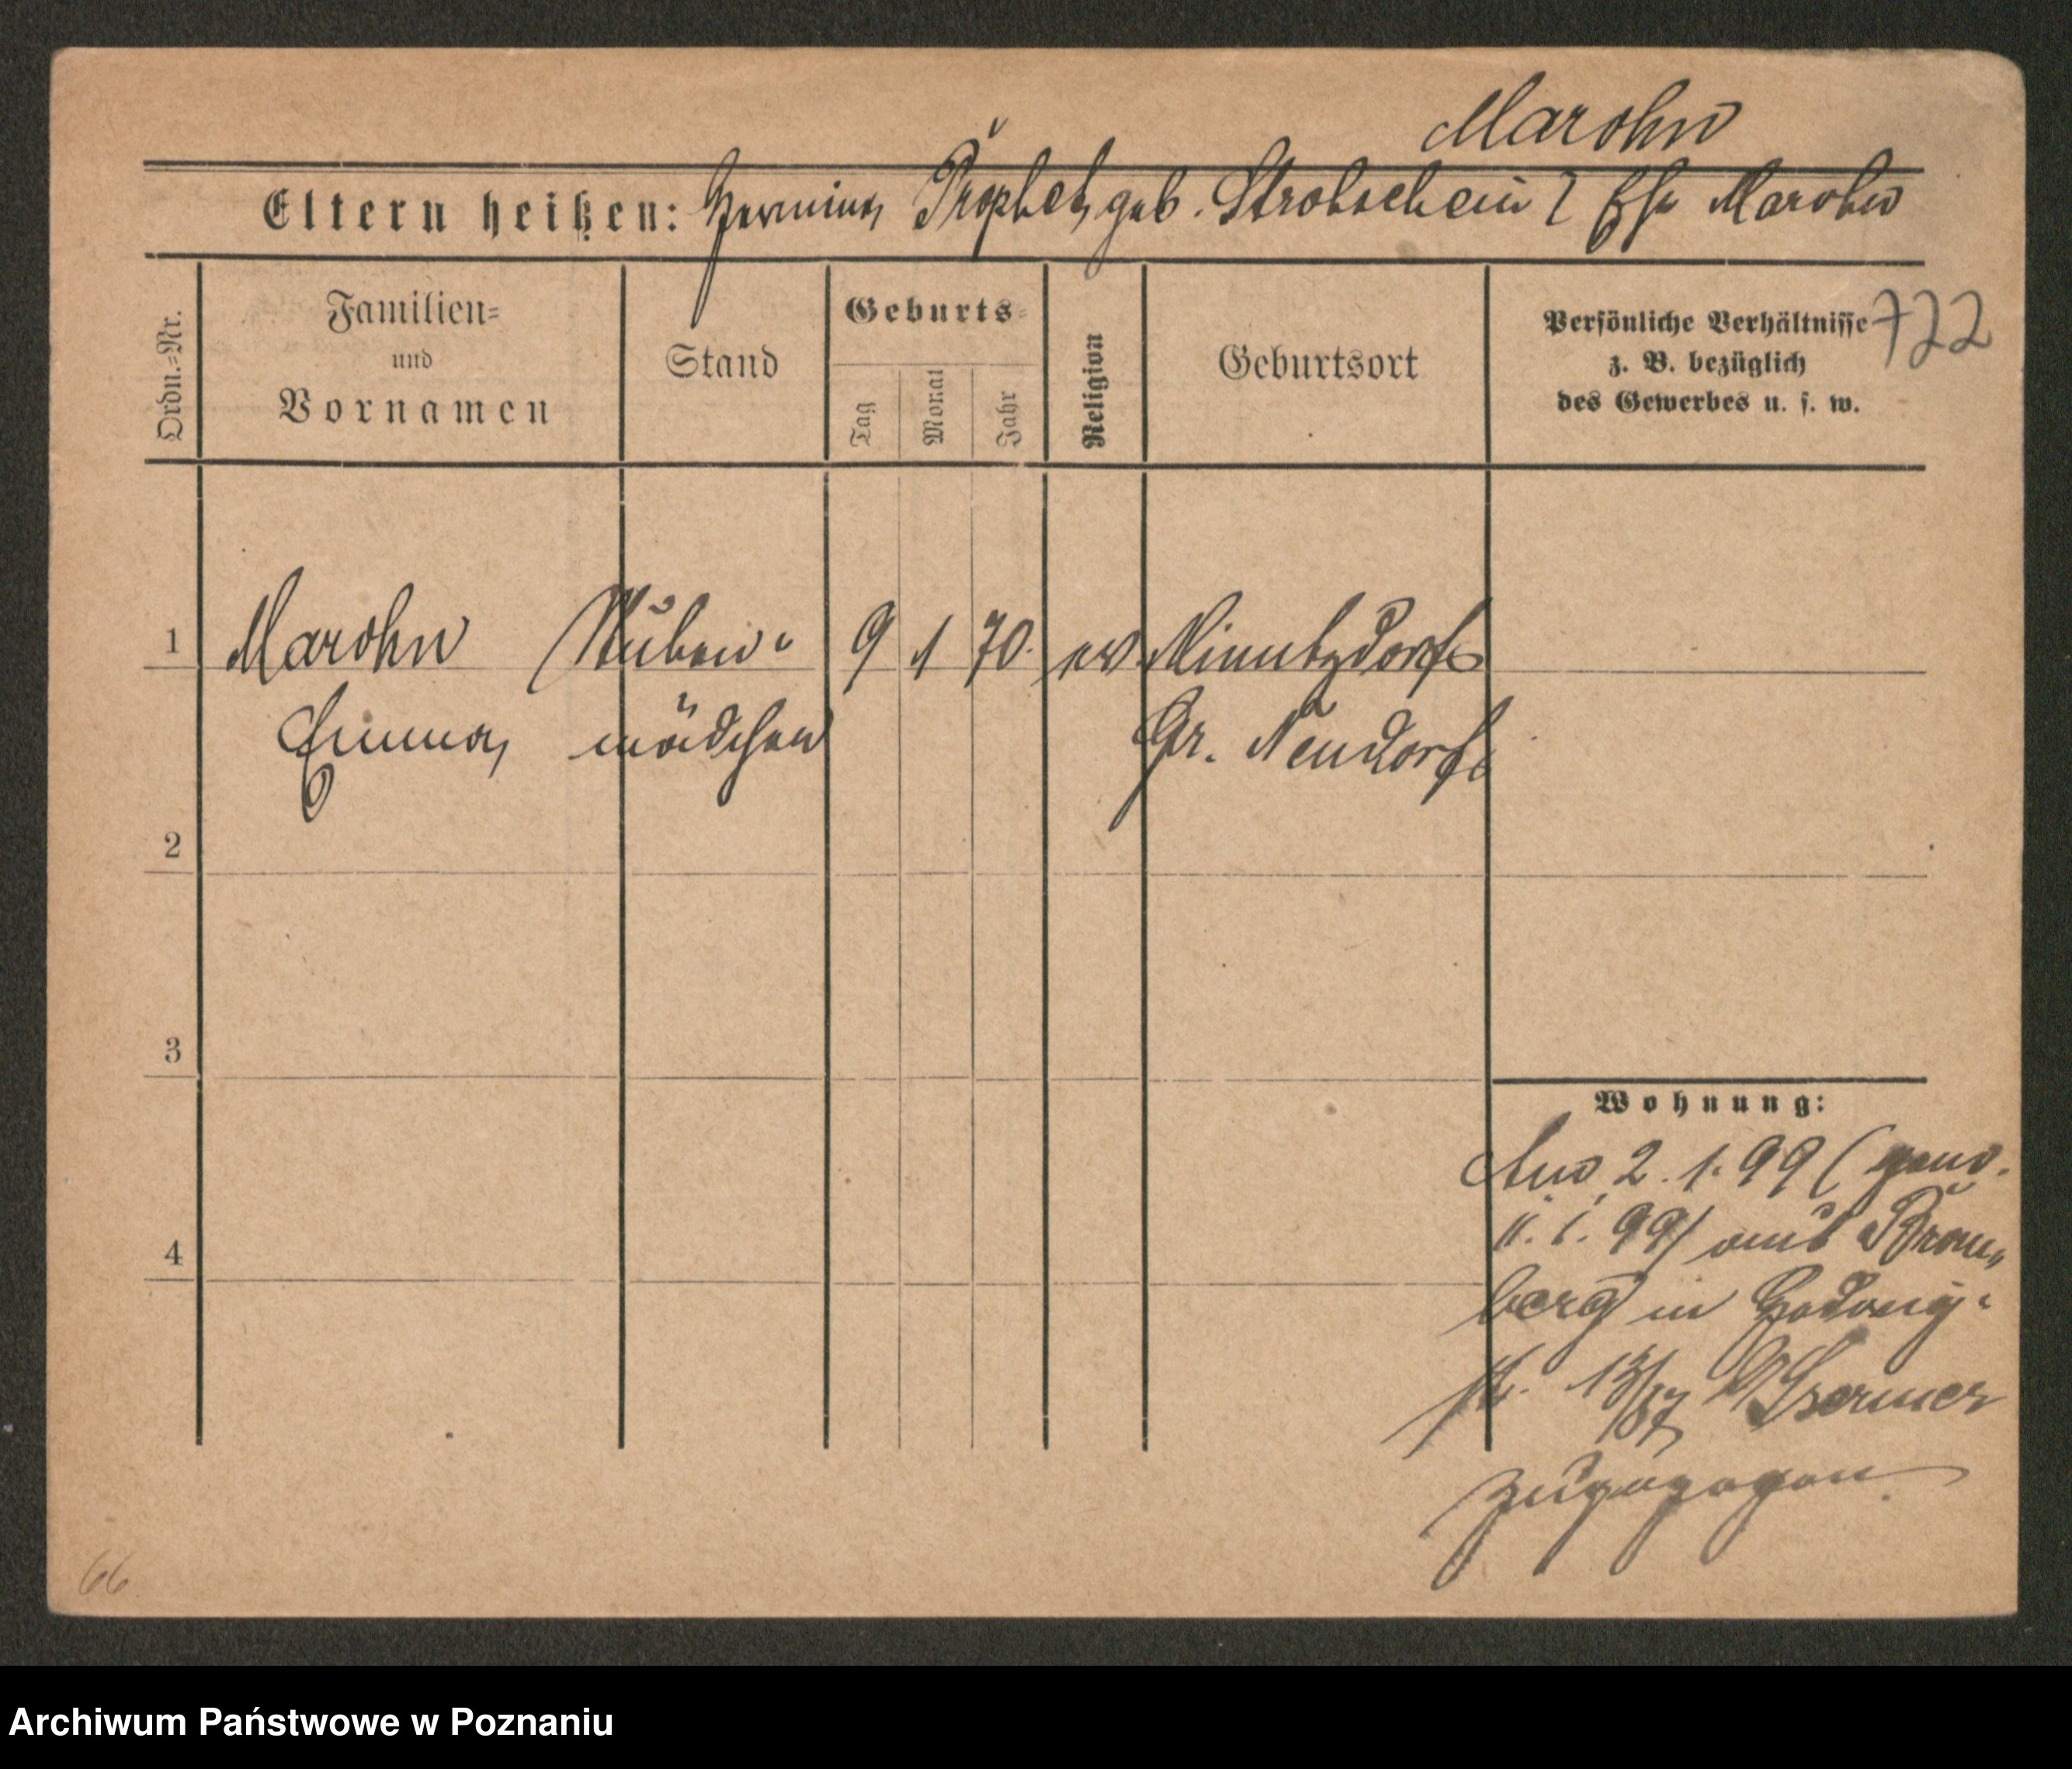 Marohn
Eltern heißen: Hermine Prophet, geb. Strohschein 2 Ehe Marohn
Ordn.-Nr.
Familien-
und
Vornamen
Stand
Geburts-
Tag
Monat
Jahr
Religion
Geburtsort
Persönliche Verhältnisse
z. B. bezüglich
des Gewerbes u. s. w.
722
1 Marohn Stuben- 9 1 70. ev. Minutsdorf
Emma, mädchen Gr. Neudorf
2
3
4
Wohnung:
2. 1. 99 (gem.
11. 1. 99) aus Brom-
berg in Hedwig-
st. 13/17
zugezogen.
66
Archiwum Państwowe w Poznaniu